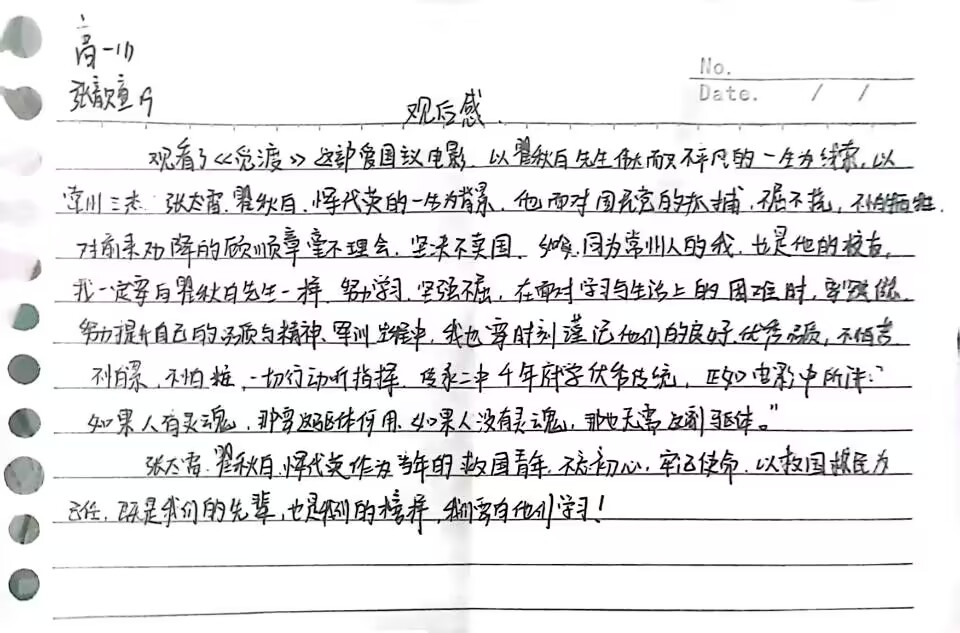 高一(1)
No.
张歆童
Date. / /
观后感.
观看了《觉渡》这部爱国议电影,以瞿秋白先生伟大而又不平凡的一生为线索,以
常州三杰:张太雷、瞿秋白、恽代英的一生为背景,他面对国民党的抓捕,不屈不挠,不怕牺牲,
对前来劝降的顾顺章毫不理会,坚决不卖国,同为常州人的我,也是他的校友,
我一定要向瞿秋白先生一样,努力学习,坚强不屈,在面对学习与生活上的困难时,
努力提升自己的品质与精神。军训过程中,我也要时刻谨记他们的良好、优秀品质,不怕苦
不怕累,不怕脏,一切行动听指挥,传承二中千年府学优秀传统,正如电影中所讲:“
如果人有灵魂,那要这躯体何用,如果人没有灵魂,那也无需这副躯体。”
张太雷、瞿秋白、恽代英作为当年的救国青年,不忘初心,牢记使命,以救国救民为
己任,既是我们的先辈,也是我们的榜样,我们要向他们学习!